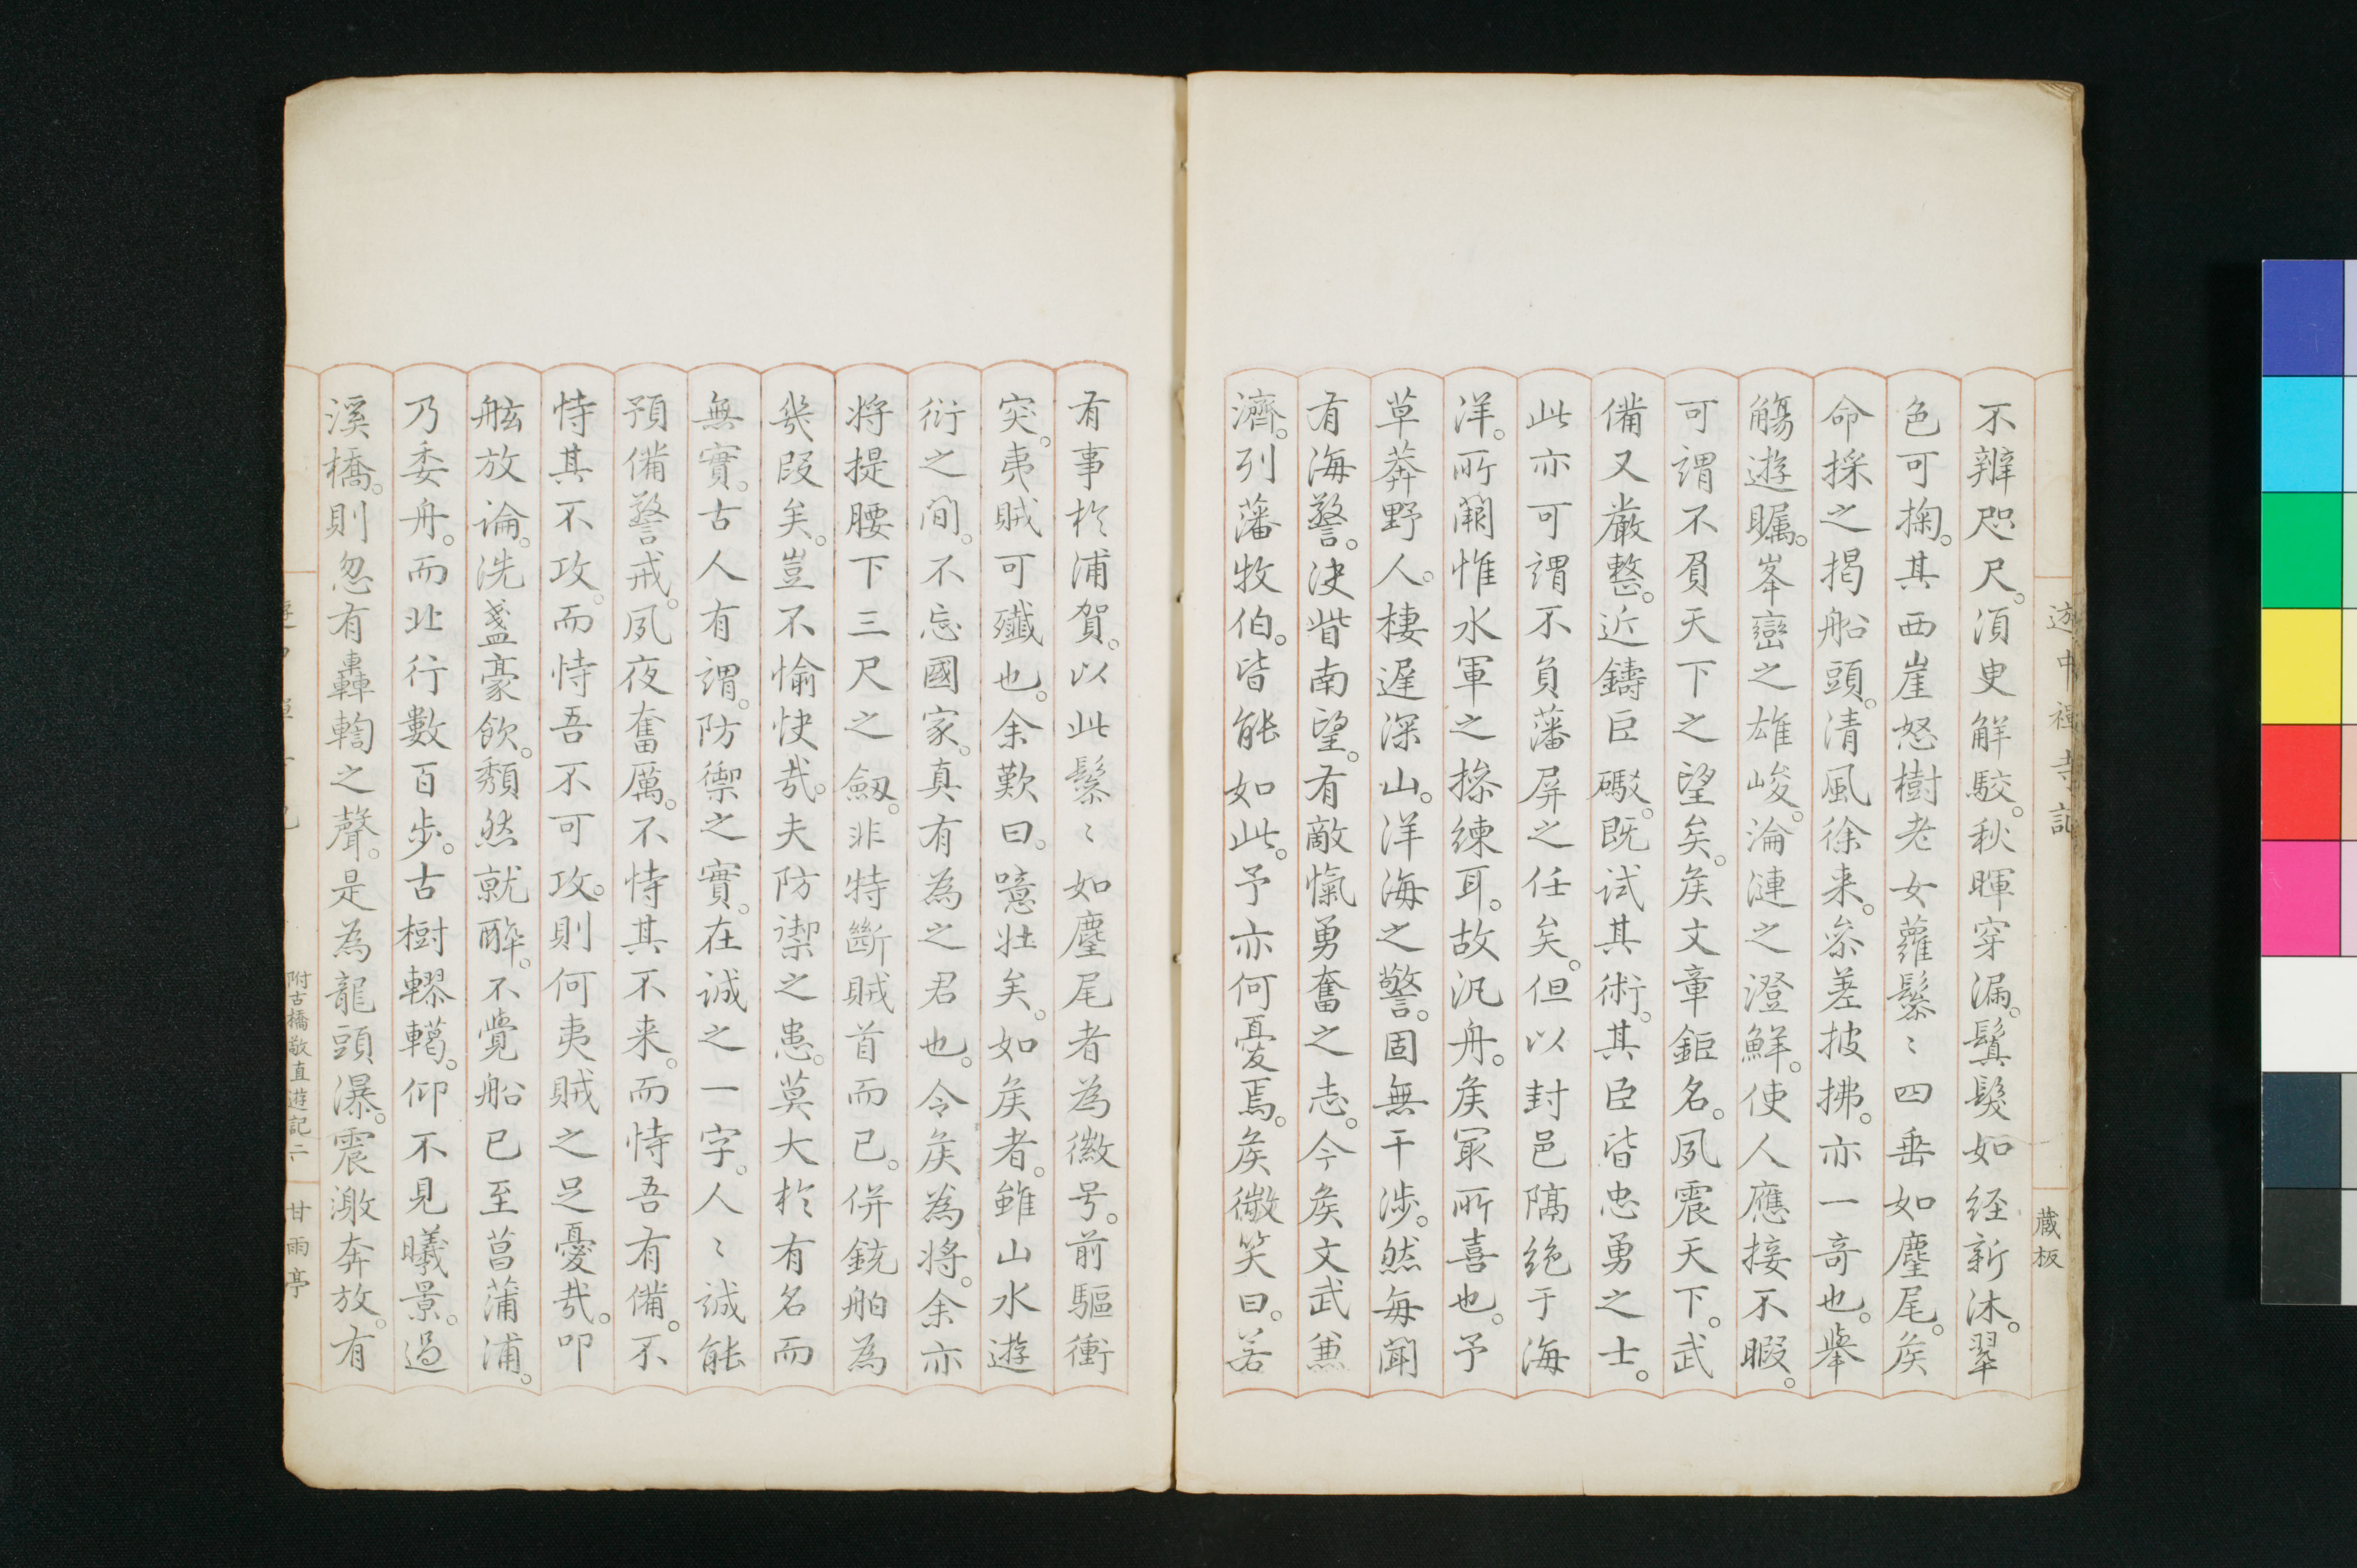 遊中禪寺記
蔵板
不辨咫尺。須臾觧駮。秋暉穿漏。鬒髮如経新沐。翠
色可掬。其西崖怒樹老女蘿鬖〻四垂如麈尾。矦
命採之揭船頭。清風徐来。叅差披拂。亦一竒也。擧
觴遊矚。峯巒之雄峻。淪漣之澄鮮。使人應接不暇。
可謂不負天下之望矣。矦文章鉅名。夙震天下。武
備又嚴整。近鑄巨礮。既试其術。其臣皆忠勇之士。
此亦可謂不負藩屏之任矣。但以封邑隔绝于海
洋。所闕惟水軍之摻練耳。故汎舟。矦冣所喜也。予
草莽野人。棲遅深山。洋海之警。固無干涉。然每聞
有海警。决眥南望。有敵愾勇奮之志。今矦文武兼
濟。列藩牧伯。皆能如此。予亦何憂焉。矦微笑曰。若
有事扵浦賀。以此鬖〻如麈尾者為徽号。前驅衝
突。夷賊可殲也。余歎曰。噫壮矣。如矦者。雖山水遊
衍之間。不忘國家。真有為之君也。令矦為將。余亦
将提腰下三尺之劔。非特斷賊首而已。併銃舶為
幾段矣。豈不愉快哉。夫防禦之患。莫大扵有名而
無實。古人有謂。防禦之實。在诚之一字。人〻诚能
預備警戒。夙夜奮厲。不恃其不来。而恃吾有備。不
恃其不攻。而恃吾不可攻。則何夷賊之足憂哉。叩
舷放論。洗盞豪飲。頽然就醉。不覺船已至菖蒲浦。
乃委舟。而北行數百步。古樹轇轕。仰不見曦景。過
溪橋。則忽有轟輷之聲。是為龍頭瀑。震激奔放。有
附古橋敬直遊記二
甘雨亭